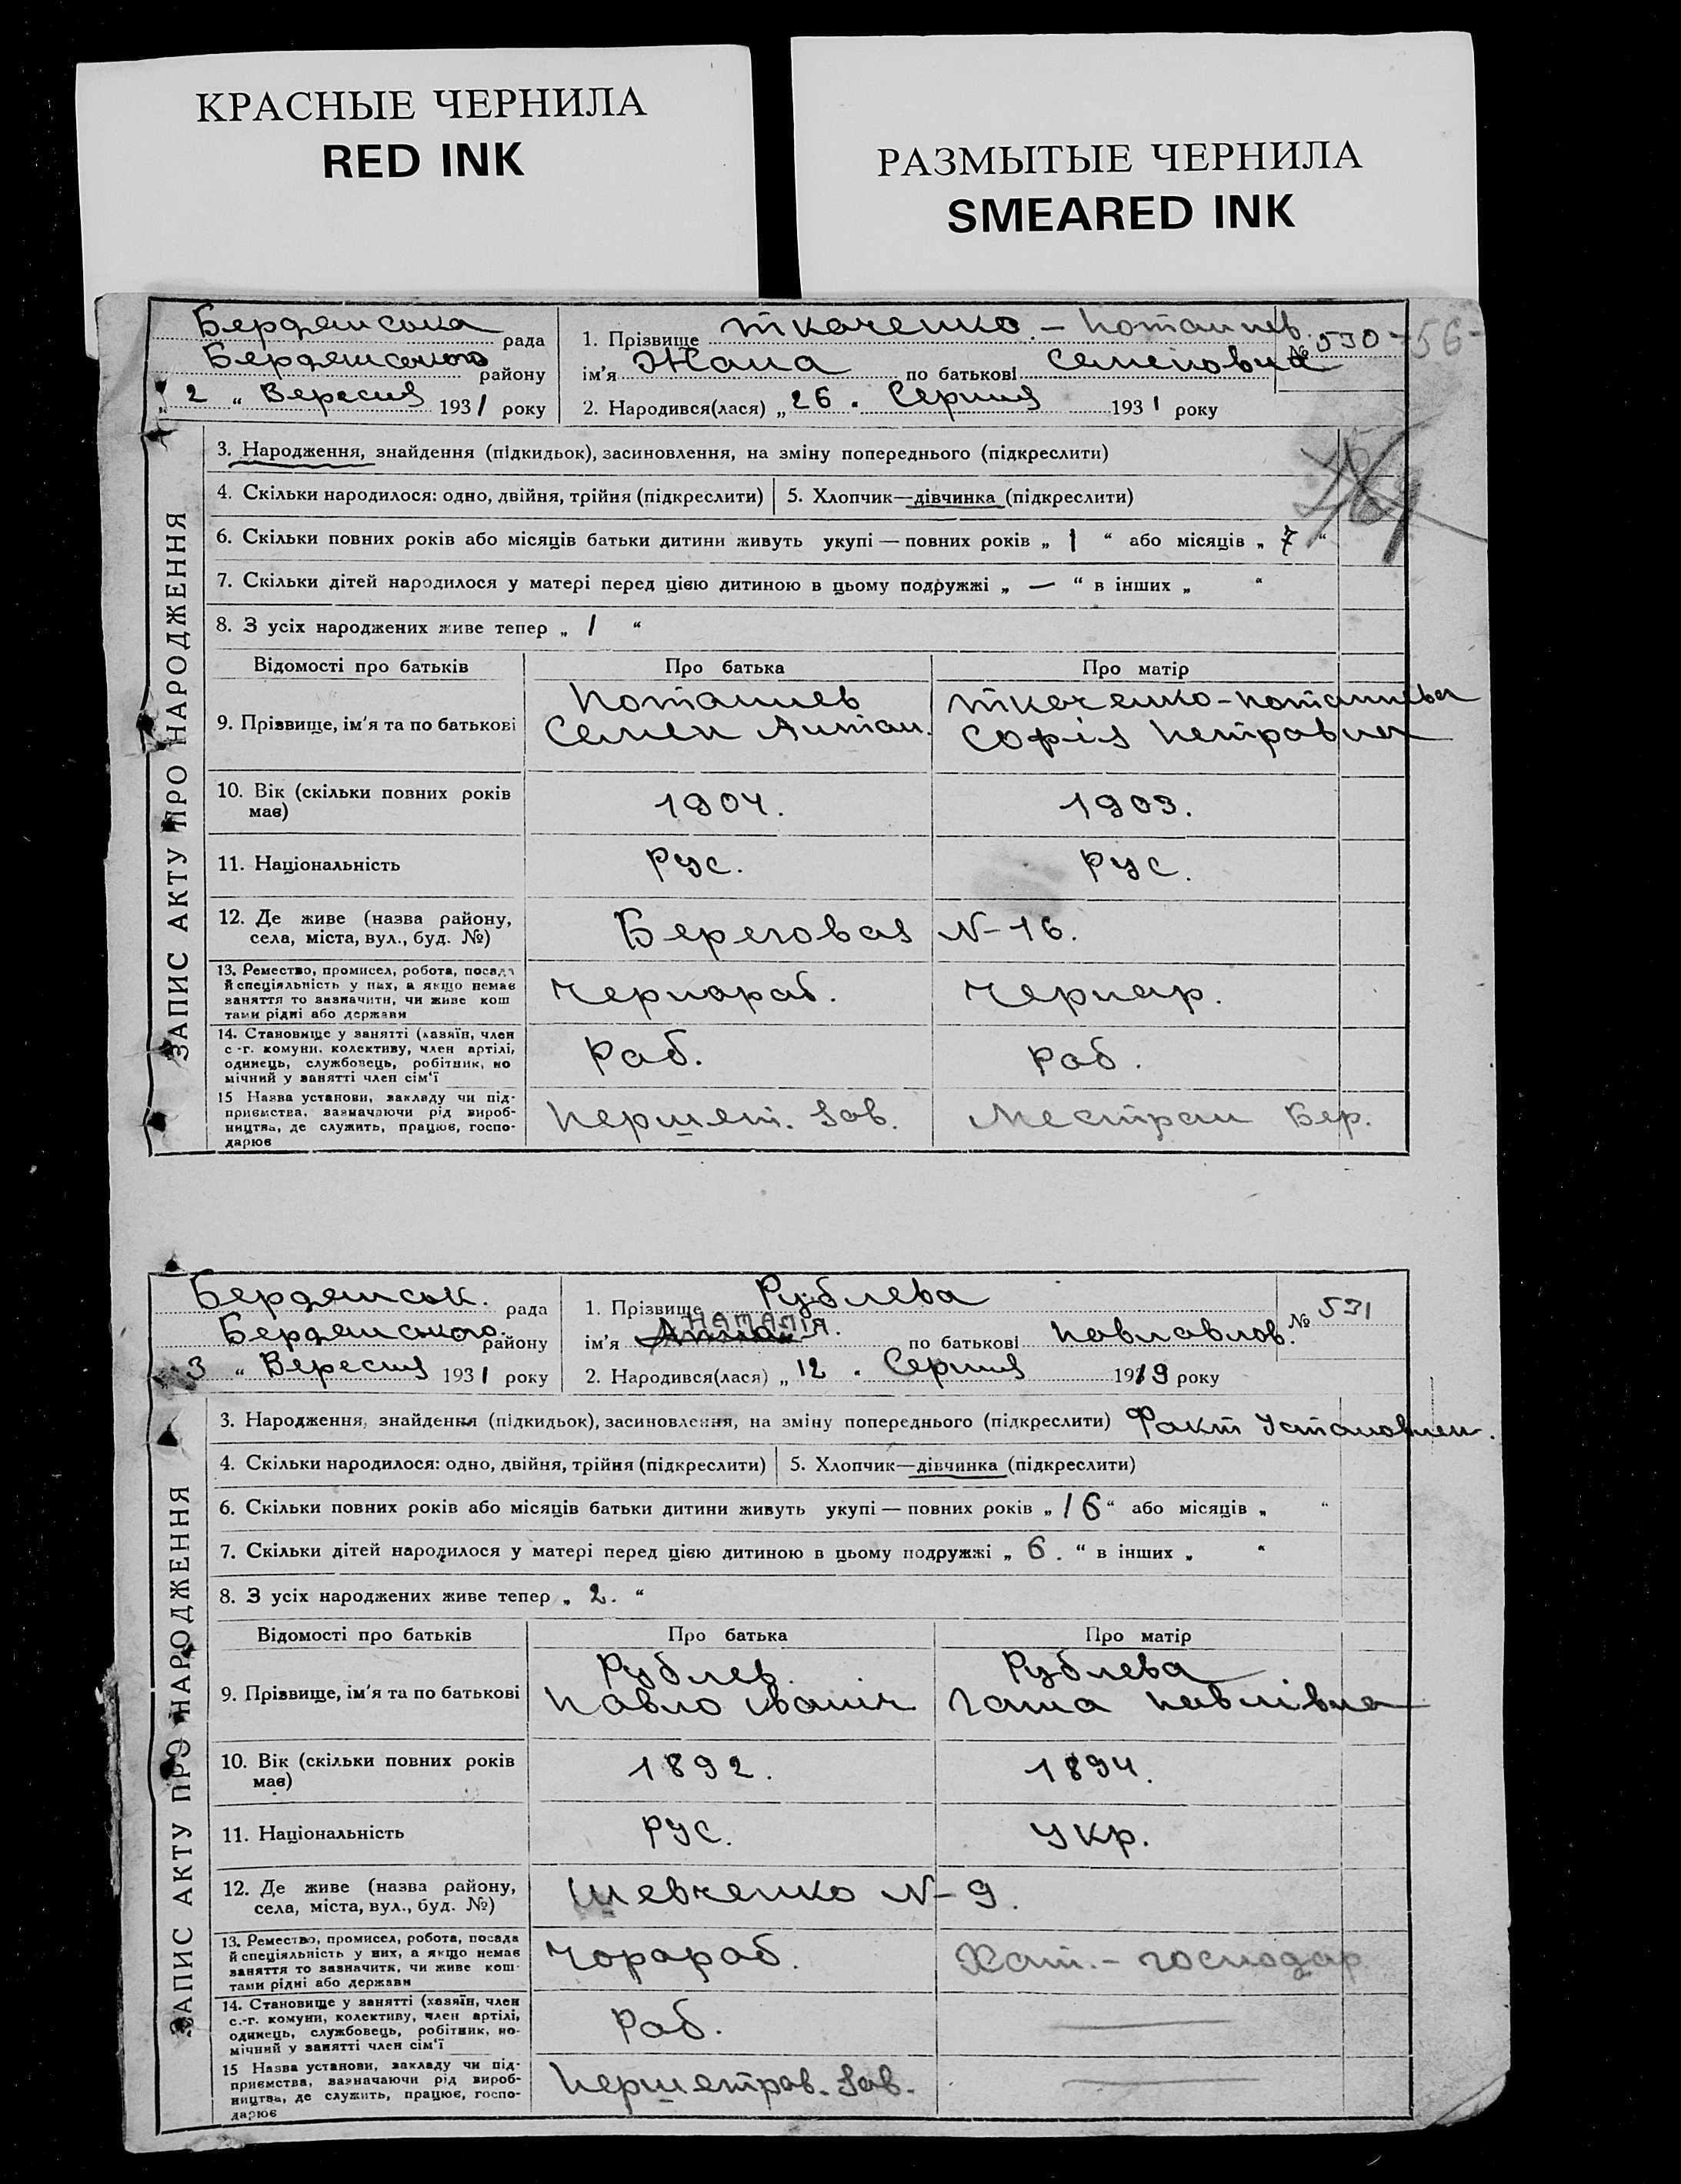 КРАСНЫЕ ЧЕРНИЛА
RED INK
РАЗМЫТЫЕ ЧЕРНИЛА
SMEARED INK
ЗАПИС АКТУ ПРО НАРОДЖЕННЯ
Бердянська рада
Бердянського району
„ 2 “ Вересня 1931 року
1. Прізвище Ткаченко - Потаннєв. № 530 -56-
ім'я Жана по батькові Семеновна
2. Народився(лася) „26. Серпня 1931 року
3. Народження, знайдення (підкидьок), засиновлення, на зміну попереднього (підкреслити)
4. Скільки народилося: одно, двійня, трійня (підкреслити) 5. Хлопчик—дівчинка (підкреслити)
6. Скільки повних років або місяців батьки дитини живуть укупі — повних років „ 1 “ або місяців „ 7 “
7. Скільки дітей народилося у матері перед цією дитиною в цьому подружжі „ — “ в інших „ “
8. З усіх народжених живе тепер „ 1 “
Відомості про батьків Про батька Про матір
9. Прізвище, ім'я та по батькові
Семен Антан. Софія Петравна
10. Вік (скільки повних років має) 1904. 1903.
11. Національність Рус. Рус.
12. Де живе (назва району, села, міста, вул., буд. №) Береговая N-16.
13. Ремество, промисел, робота, посада
й спеціяльність у них, а якщо немає
заняття то зазначити, чи живе кош
тами рідні або держави
Чернораб. Чернар.
14. Становище у занятті (хазяїн, член
с.-г. комуни, колективу, член артілі,
одинець, службовець, робітник, по
мічний у занятті член сім'ї
Раб. Раб.
15 Назва установи, закладу чи під-
приємства, зазначаючи рід вироб-
ництва, де служить, працює, госпо-
дарює
Першет. Зав. Бер.
ЗАПИС АКТУ ПРО НАРОДЖЕННЯ
Бердянськ. рада
Бердянського району
3 “ Вересня 1931 року
1. Прізвище Рублева № 531
ім'я Анна НАТАЛІЯ. по батькові Павлавлов.
2. Народився(лася) „ 12 . Серпня 1919 року
3. Народження, знайдення (підкидьок), засиновлення, на зміну попереднього (підкреслити) Факт Устоновлен.
4. Скільки народилося: одно, двійня, трійня (підкреслити) 5. Хлопчик—дівчинка (підкреслити)
6. Скільки повних років або місяців батьки дитини живуть укупі — повних років „ 16 “ або місяців „ “
7. Скільки дітей народилося у матері перед цією дитиною в цьому подружжі „ 6. “ в інших „ “
8. З усіх народжених живе тепер „ 2. “
Відомості про батьків Про батька Про матір
9. Прізвище, ім'я та по батькові Рублев. Рублева
Павло Іваніч Ганна Павлівна
10. Вік (скільки повних років має) 1892. 1894.
11. Національність Рус. Укр.
12. Де живе (назва району, села, міста, вул., буд. №) Шевченко N-9.
13. Ремество, промисел, робота, посада
й спеціяльність у них, а якщо немає
заняття то зазначити, чи живе кош-
тами рідні або держави
Чорараб. Хат.- господар
14. Становище у занятті (хазяїн, член
с.-г. комуни, колективу, член артілі,
одинець, службовець, робітник, по-
мічний у занятті член сім'ї
Раб.
15 Назва установи, закладу чи під-
приємства, зазначаючи рід вироб-
ництва, де служить, працює, госпо-
дарює
Першетрав. Зав.